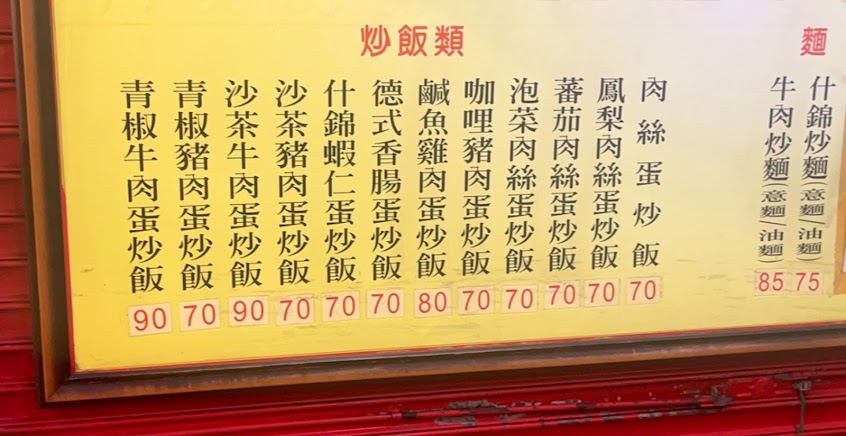 麵
什錦炒麵(意麵/油麵)
75
牛肉炒麵(意麵/油麵)
85
炒飯類
肉絲蛋炒飯
70
鳳梨肉絲蛋炒飯
70
蕃茄肉絲蛋炒飯
70
泡菜肉絲蛋炒飯
70
咖哩豬肉蛋炒飯
70
鹹魚雞肉蛋炒飯
80
德式香腸蛋炒飯
70
什錦蝦仁蛋炒飯
70
沙茶豬肉蛋炒飯
70
沙茶牛肉蛋炒飯
90
青椒豬肉蛋炒飯
70
青椒牛肉蛋炒飯
90